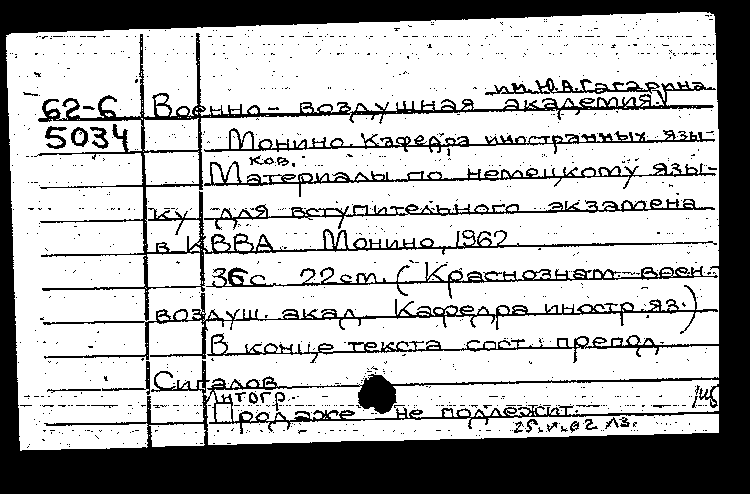 им. Ю.А.Гагарина.
62-6 Военно-воздушная академия.
5034 Монино. Кафедра иностранных язы-
ков.
Материалы по немецкому язы-
ку для вступительного экзамена
в КВВА. Монино, 1962
36с. 22см. (Краснознам. воен.-
воздуш. акад. Кафедра иностр. яз.)
В конце текста сост.: препод.
Сигалов
Литогр.
Продаже не подлежит.